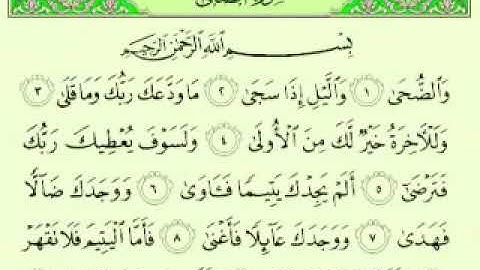 بِسْمِ ٱللَّهِ ٱلرَّحْمَٰنِ ٱلرَّحِيمِ
وَٱلضُّحَىٰ ١ وَٱلَّيْلِ إِذَا سَجَىٰ ٢ مَا وَدَّعَكَ رَبُّكَ وَمَا قَلَىٰ ٣
وَلَلْءَاخِرَةُ خَيْرٌ لَّكَ مِنَ ٱلْأُولَىٰ ٤ وَلَسَوْفَ يُعْطِيكَ رَبُّكَ
فَتَرْضَىٰٓ ٥ أَلَمْ يَجِدْكَ يَتِيمًا فَـَٔاوَىٰ ٦ وَوَجَدَكَ ضَآلًّا
فَهَدَىٰ ٧ وَوَجَدَكَ عَآئِلًا فَأَغْنَىٰ ٨ فَأَمَّا ٱلْيَتِيمَ فَلَا تَقْهَرْ